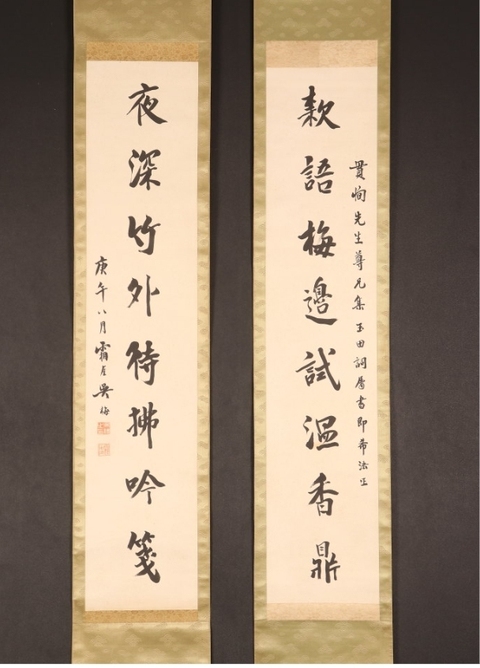 貫恂先生尊兄集玉田詞屬書即希法正
欵語梅邊試溫香鼎
夜深竹外待拂吟箋
庚午八月霜厓吳梅